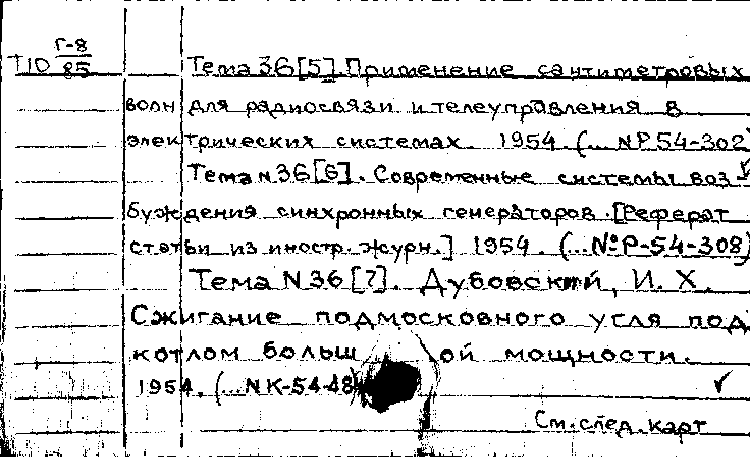 Т10 Г-8/85 Тема 36[5] Применение сантиметровых
волн для радиосвязи и телеуправления в
элек трических системах. 1954 (... NР54-302)
Тема N36[6]. Современные системы воз
буждения синхронных генераторов. [Реферат
статьи из иностр. журн.] 1954. (... №Р-54-308)
Тема N36[7]. Дубовский, И. Х.
Сжигание подмосковного угля под
котлом больш ой мощности.
1954. (... NК-54-48)
См. след. карт